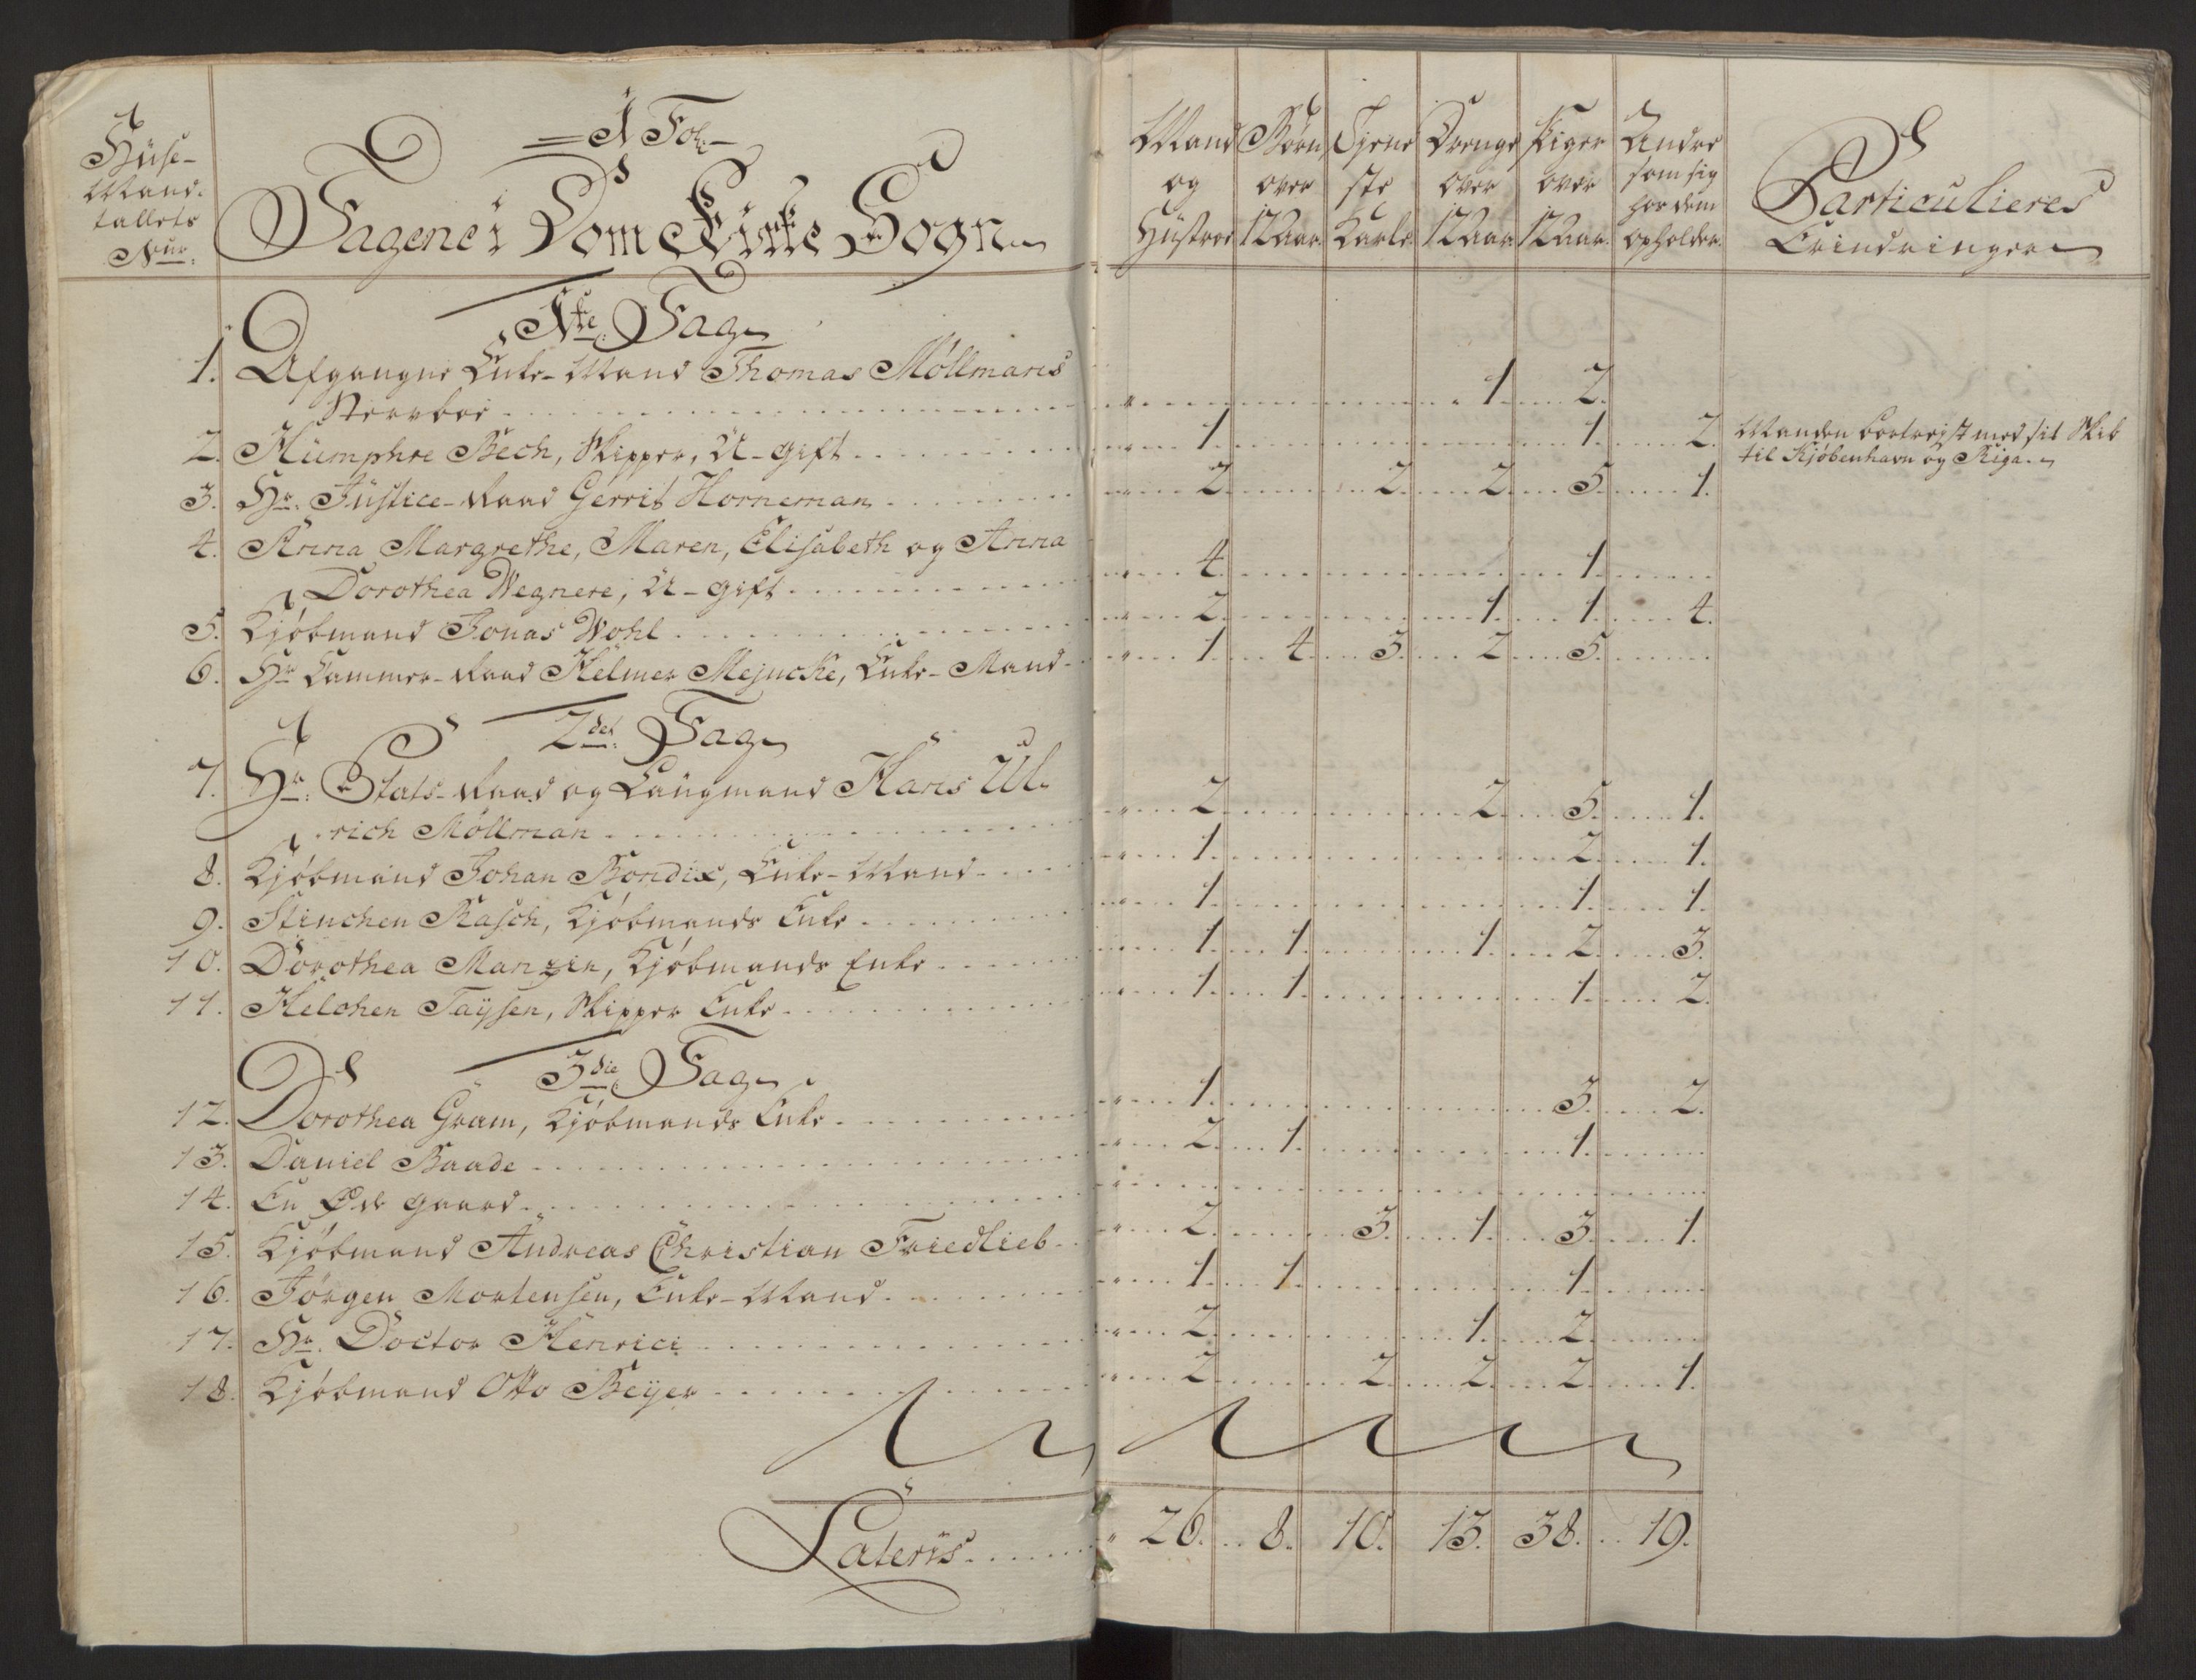 Huse-
Mand-
tallets
Nur.
1 Fol.
Tagene i Dom Kirke Sogn
Mand
og
Hustroe
Børn
over
12 Aar.
Tjene
ste
Karle.
Drenge
over
12 Aar.
Piger
over
12 Aar.
Andre
som sig
hos dem
opholder.
Particulieres
Erindringer
1te Tag
1. Afgangne Enke-Mand Thomas Möllmans
Stervboe 1. 2.
2. Humphre Bech, Skipper, U-gift 1. 1. 2. Manden bortrejst med sit Skib
til Kjøbenhavn og Riga.
3. Hr. Justice-Raad Gerrit Horneman 2. 2. 2. 5. 1.
4. Anna Margrethe, Maren, Elisabeth og Anna
Dorothea Wegnere, U-gift 4. 1.
5. Kjøbmand Jonas Wohl 2. 1. 1. 4.
6. Hr Cammer-Raad Helmer Mejncke, Enke-Mand 1. 4. 3. 2. 5.
2det Tag
7. Hr. Etats-Raad og Laugmand Hans Ul-
rich Möllman 2. 2. 5. 1.
8. Kjøbmand Johan Bondix, Enke-Mand 1. 2. 1.
9. Stinchen Rasch, Kjøbmands Enke 1. 1. 1.
10. Dorothea Manzin, Kjøbmands Enke 1. 1. 1. 2. 3.
11. Helchen Taysen, Skipper Enke 1. 1. 1. 2.
3die Tag
12. Dorothea Gram, Kjøbmands Enke 1. 3. 2.
13. Daniel Baade 2. 1. 1.
14. En Øde gaard
15. Kjøbmand Andreas Christian Friedlieb 2. 3. 1. 3. 1.
16. Jørgen Mortensen, Enke-Mand 1. 1. 1.
17. Hr. Doctor Henrici 2. 1. 2.
18. Kjøbmand Otto Beyer 2. 2. 2. 2. 1.
Lateris 26. 8. 10. 13. 38. 19.